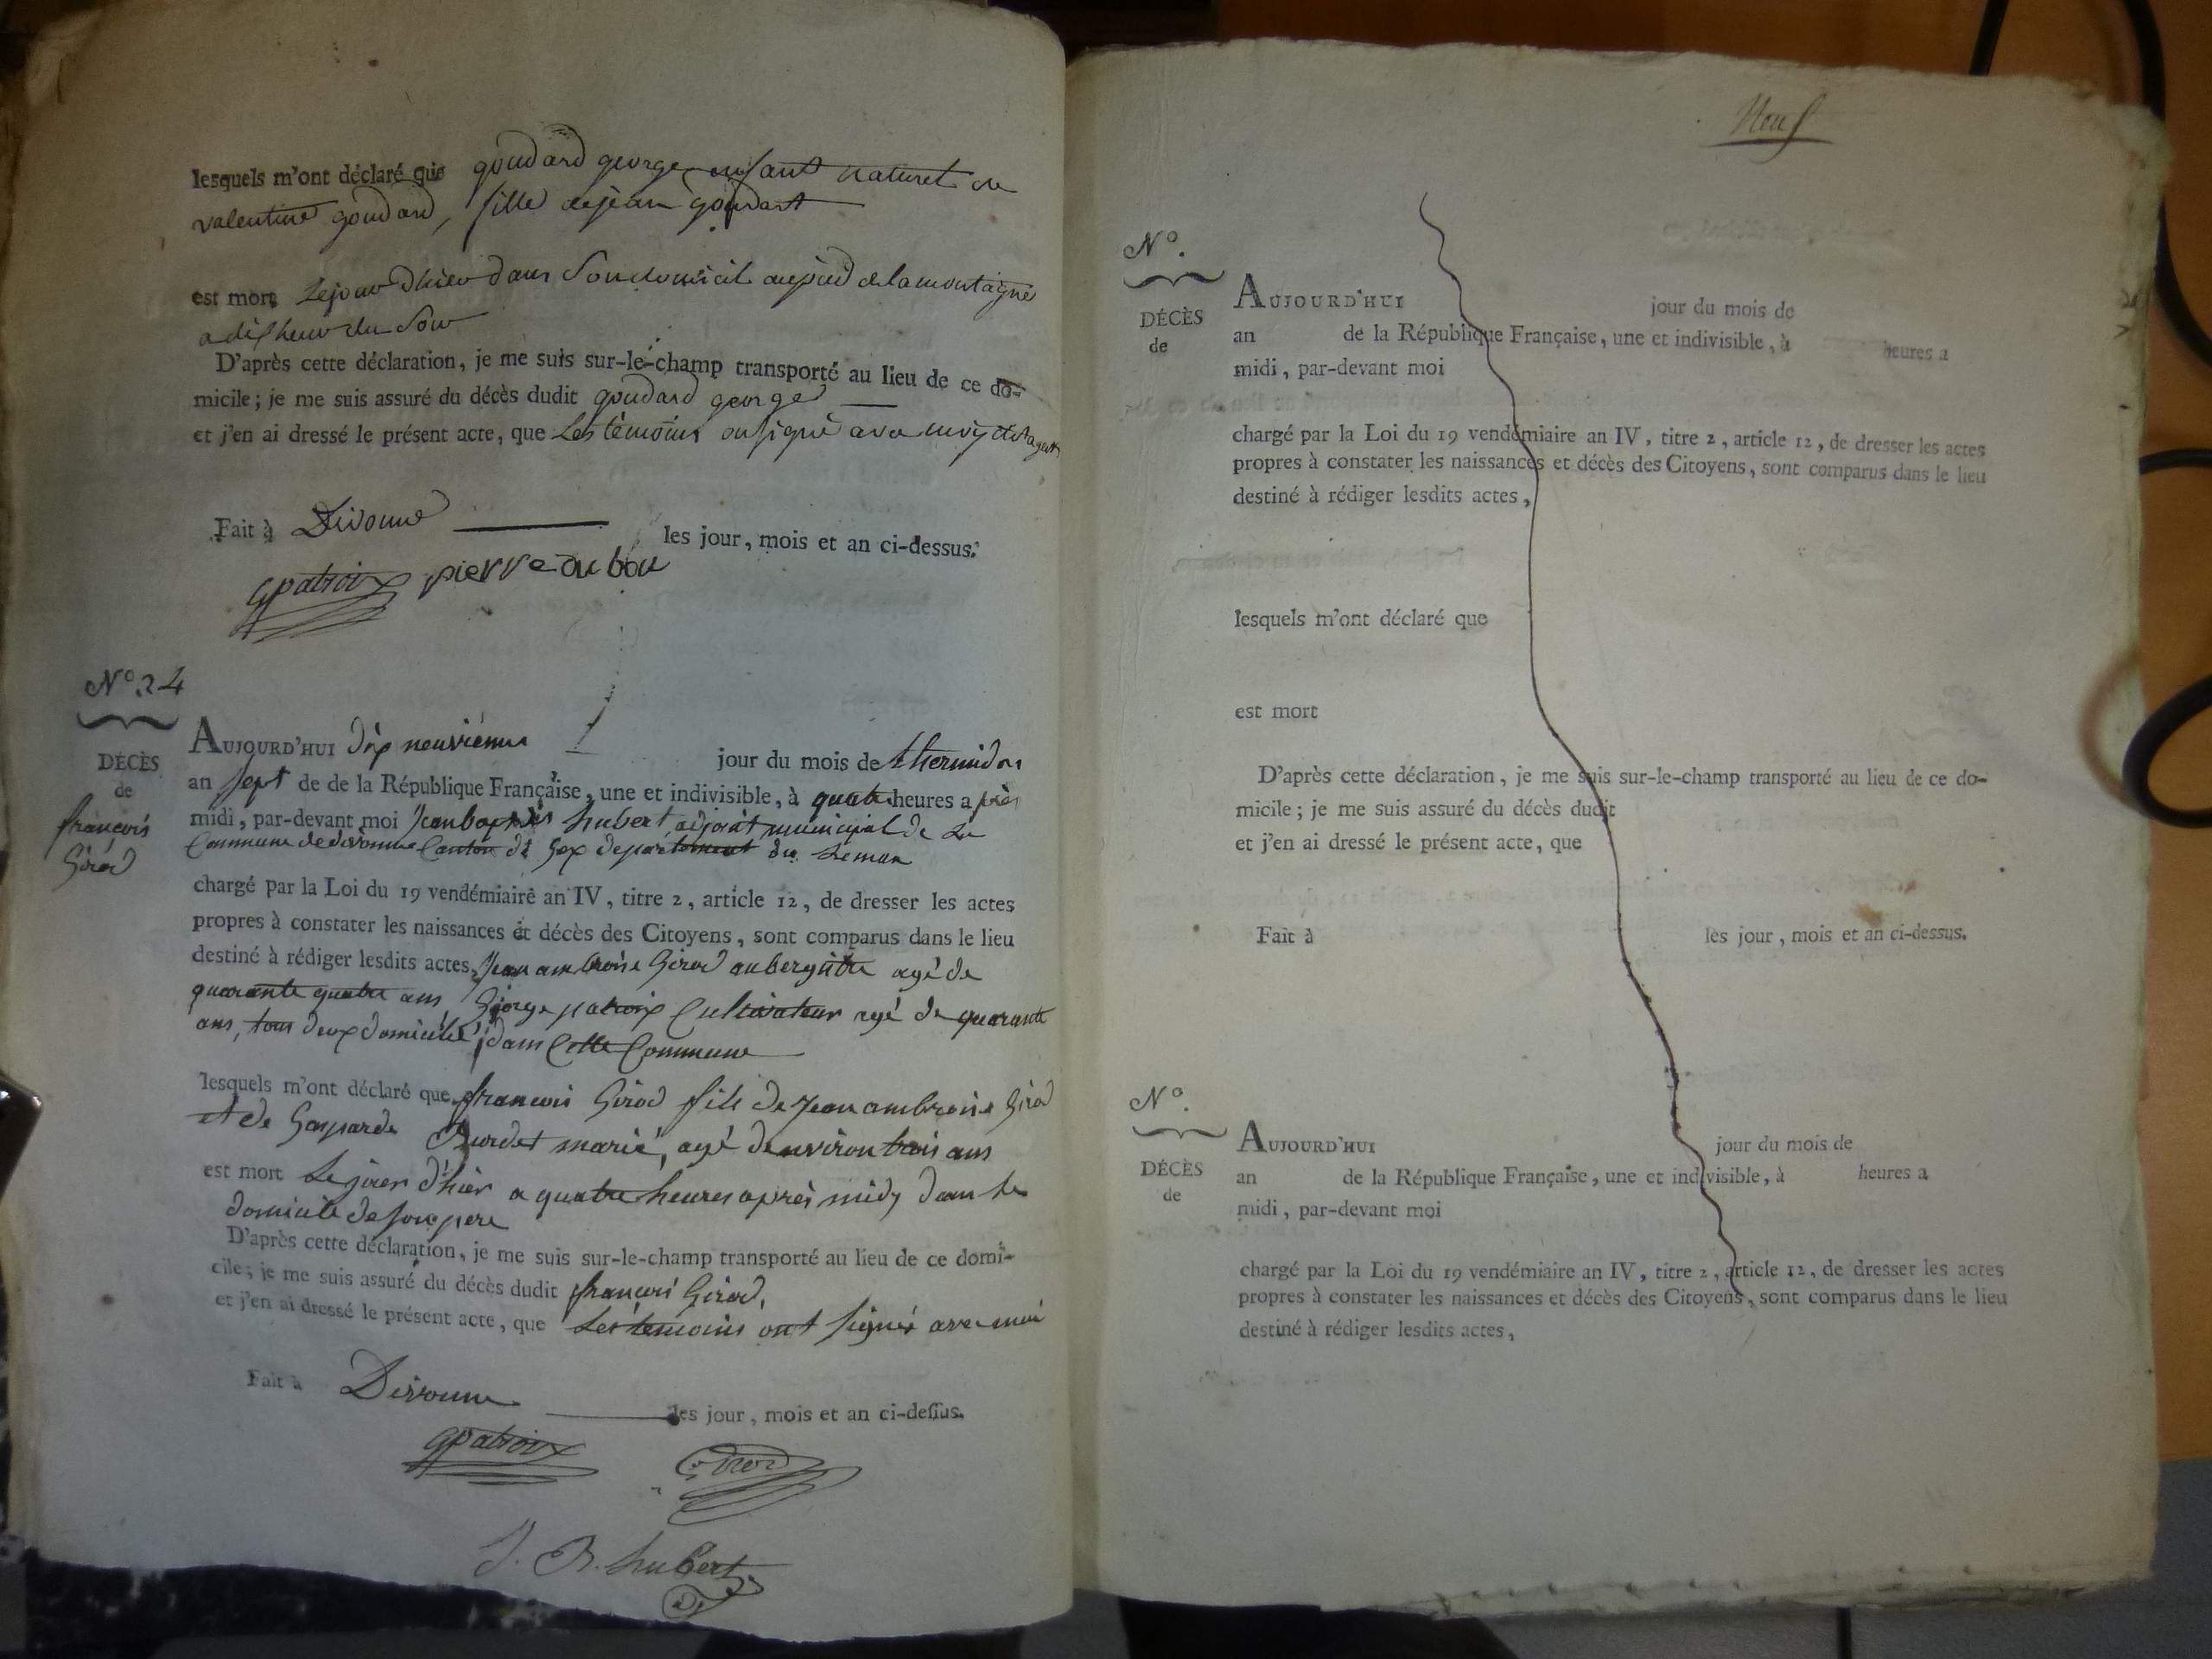 lesquels m'ont déclaré que goudard george enfant naturel de
valentine goudard, fille de jean goudart
est mort le jour d'hier dans son domicil au pied de la montagne
a dix heur du soir
D'après cette déclaration, je me suis sur-le-champ transporté au lieu de ce do-
micile ; je me suis assuré du décès dudit goudard george
et j'en ai dressé le présent acte, que les témoins on signé avec moy dit agent
Fait à Divonne les jour, mois et an ci-dessus.
gpatroix pierre dubou
N.º 24
DÉCÈS
de
françois
Girod
AUJOURD'HUI dix neuvième jour du mois de thermidor
an sept de de la République Française, une et indivisible, à quatre heures a près
midi, par-devant moi Jean baptiste hubert adjoint municipal de la
Commune de divonne Canton de Gex departement du Leman
chargé par la Loi du 19 vendémiaire an IV, titre 2, article 12, de dresser les actes
propres à constater les naissances et décès des Citoyens, sont comparus dans le lieu
destiné à rédiger lesdits actes, Jean ambroise Girod aubergiste agé de
quarante quatre ans George patroix Cultivateur agé de quarante
ans, tous deux domicilié dans Cette Commune
lesquels m'ont déclaré que françois Girod fils de Jean ambroise Girod
et de Gasparde Burdet marié, agé denviron trois ans
est mort Le jour d'hier a quatre heures après midy dans le
domicile de son pere
D'après cette déclaration, je me suis sur-le-champ transporté au lieu de ce domi-
cile ; je me suis assuré du décès dudit françois Girod,
et j'en ai dressé le présent acte, que Les temoins ont signés avec moi
Fait à Divonne les jour, mois et an ci-dessus.
gpatroix Girod
J. B. hubert
Neuf
N.º
DÉCÈS
de
AUJOURD'HUI jour du mois de
an de la République Française, une et indivisible, à heures a
midi, par-devant moi
chargé par la Loi du 19 vendémiaire an IV, titre 2, article 12, de dresser les actes
propres à constater les naissances et décès des Citoyens, sont comparus dans le lieu
destiné à rédiger lesdits actes,
lesquels m'ont déclaré que
est mort
D'après cette déclaration, je me suis sur-le-champ transporté au lieu de ce do-
micile ; je me suis assuré du décès dudit
et j'en ai dressé le présent acte, que
Fait à les jour, mois et an ci-dessus.
N.º
DÉCÈS
de
AUJOURD'HUI jour du mois de
an de la République Française, une et indivisible, à heures a
midi, par-devant moi
chargé par la Loi du 19 vendémiaire an IV, titre 2, article 12, de dresser les actes
propres à constater les naissances et décès des Citoyens, sont comparus dans le lieu
destiné à rédiger lesdits actes,